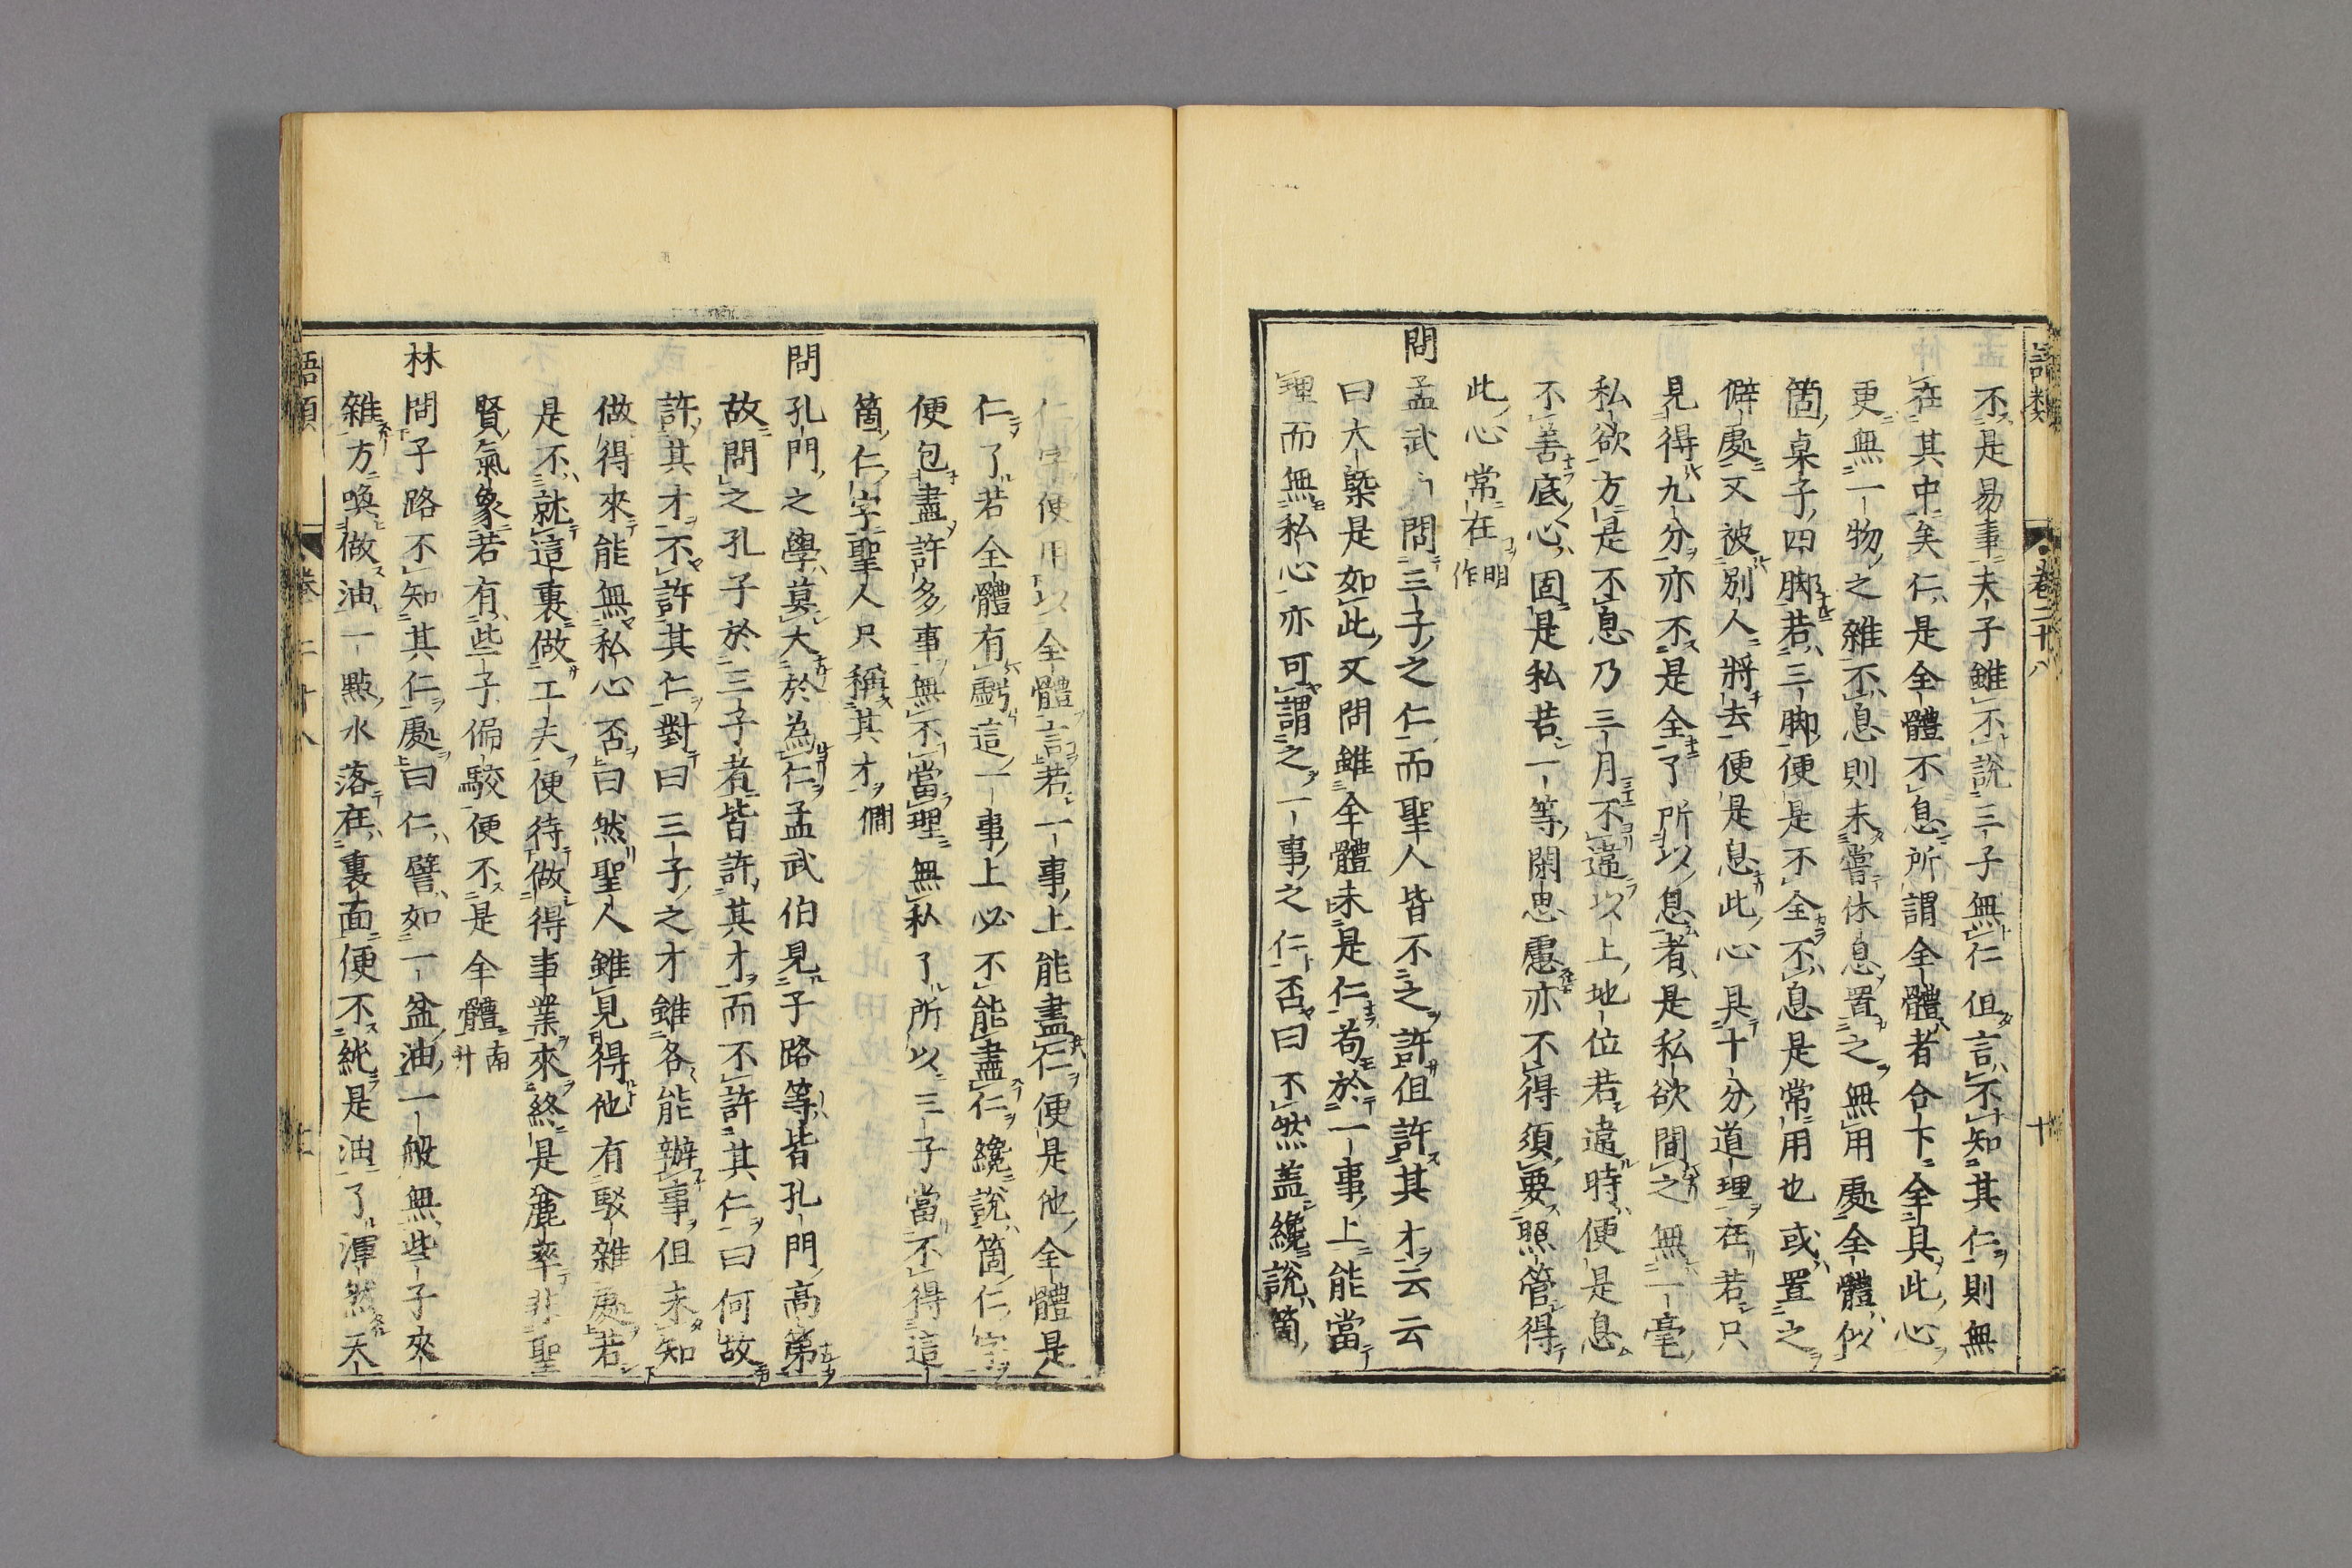 語類 卷二十八 十
不是易事夫子雖不說三子無仁但言不知其仁則無
在其中矣仁是全體不息所謂全體者合下全具此心
更無一物之雜不息則未嘗休息置之無用處全體似
箇桌子四脚若三脚便是不全不息是常用也或置之
僻處又被別人將去便是息此心具十分道理在若只
見得九分亦不是全了所以息者是私欲間之無一毫
私欲方是不息乃三月不違以上地位若違時便是息
不善底心固是私若一等閑思慮亦不得須要照管得
此心常在 明作
問孟武〻問三子之仁而聖人皆不之許但許其才云云
曰大槩是如此又問雖全體未是仁苟於一事上能當
理而無私心亦可謂之一事之仁否曰不然盖纔說箇
仁字便用以全體言若一事上能盡仁便是他全體是
仁了若全體有虧這一事上必不能盡仁纔說箇仁字
便包盡許多事無不當理無私了所以三子當不得這
箇仁字聖人只稱其才 僩
問孔門之學莫大於為仁孟武伯見子路等皆孔門高第
故問之孔子於三子者皆許其才而不許其仁曰何故
許其才不許其仁對曰三子之才雖各能辦事但未知
做得來能無私心否曰然聖人雖見得他有駁雜處若
是不就這裏做工夫便待做得事業來終是麄率非聖
賢氣象若有些子偏駁便不是全體 南升
林問子路不知其仁處曰仁譬如一盆油一般無些子夾
雜方喚做油一點水落在裏面便不純是油了渾然天
語類 卷二十八